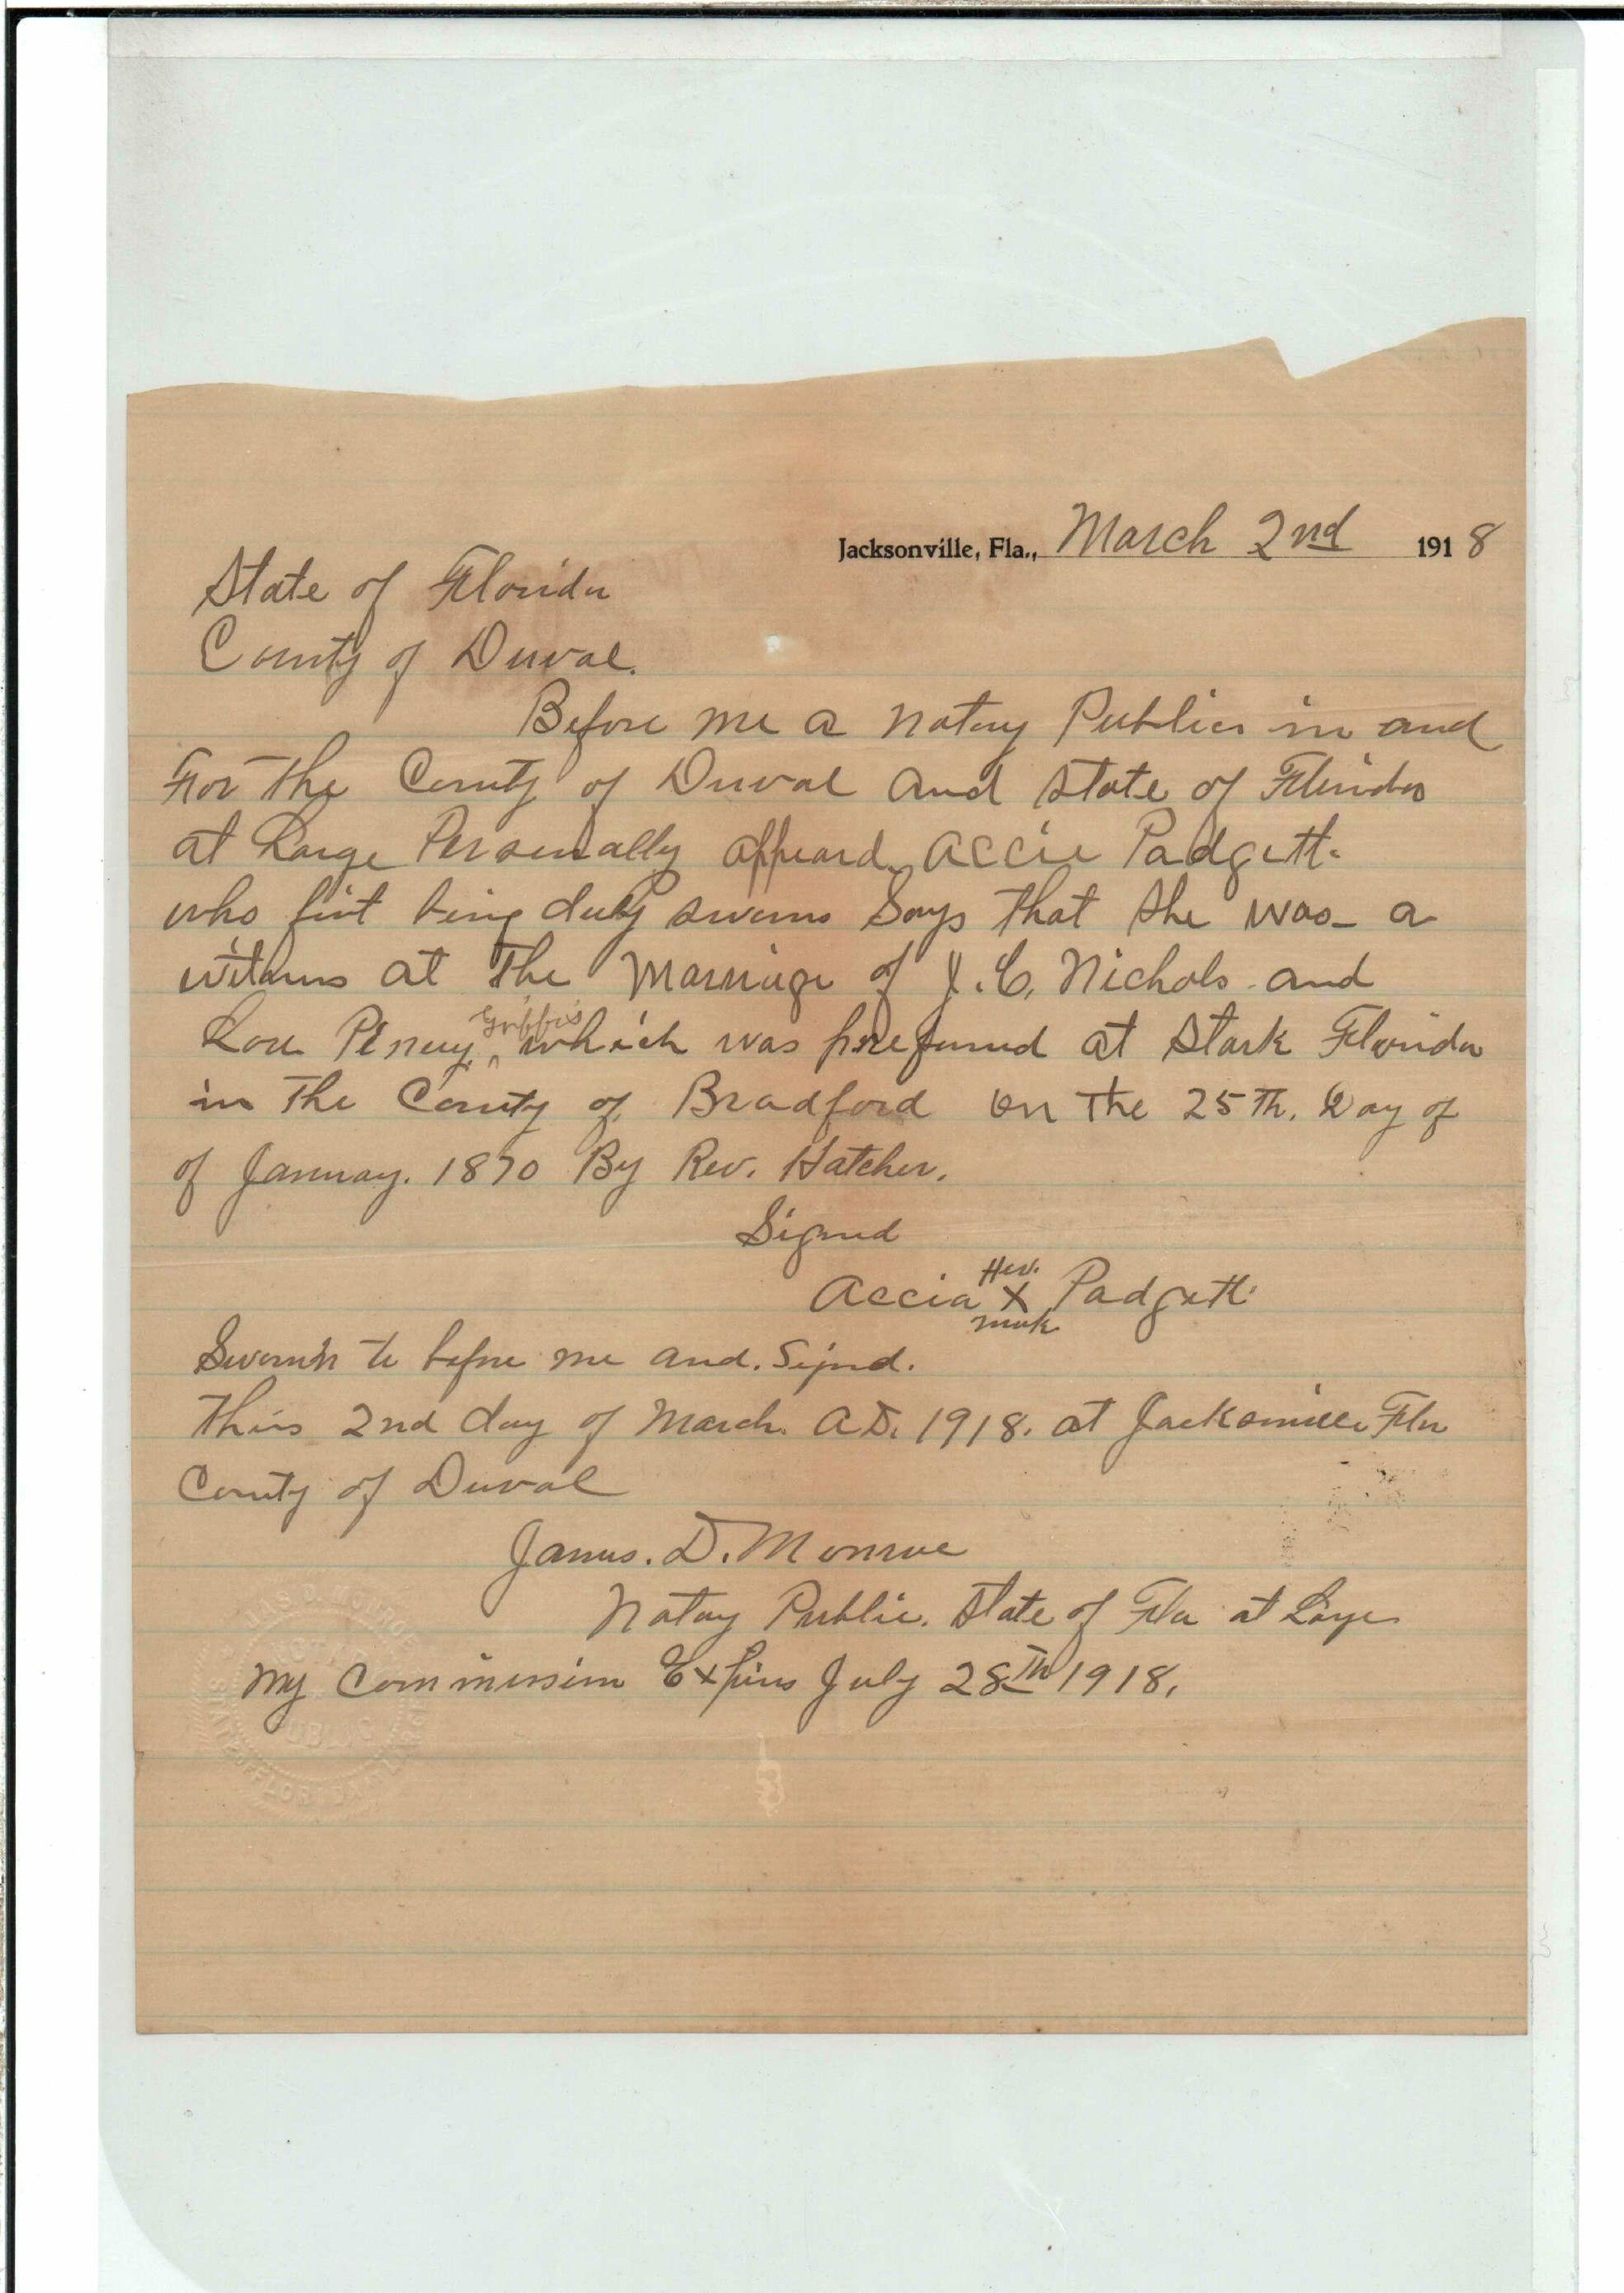 Jacksonville, Fla., March 2nd 1918
State of Florida
County of Duval.
Before me a Notary Public in and
For the County of Duval and State of Florida
at Large Personally appeard, Accie Padgett.
who first being duly sworn Says that she was a
witness at the Marriage of J. C. Nichols and
Griffis
Lou Penny, ^ which was preformed at Stark Florida
in The County of Bradford on the 25th. Day of
of January. 1870 By Rev. Hatcher.
Signed
Her.
Accia X Padgett.
mark
Sworn to before me and. Signd.
This 2nd day of March. A.D. 1918. at Jacksonville Fla
County of Duval
James. D. Monroe
Notary Public. State of Fla at Large
My Commission Expires July 28th 1918.
JAS D. MONROE
NOTARY
PUBLIC
STATE OF FLORIDA AT LARGE